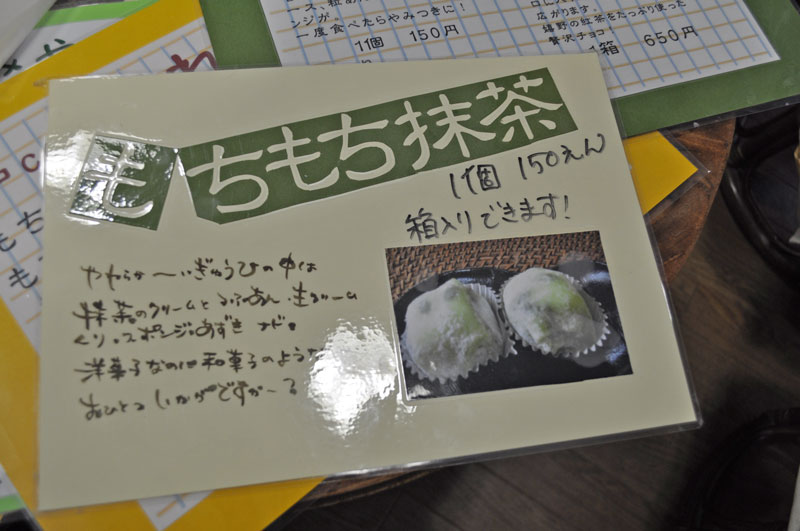 ンジが。
一度食べたらやみつきに！
1個 150円
広がります。
嬉野の紅茶をたっぷり使った
贅沢チョコ
1箱 650円
もちもち抹茶
1個 150えん
箱入りできます！
やわらか〜いぎゅうひの中は
抹茶のクリームとつぶあん・生クリーム
くり・スポンジ・あずき など。
洋菓子なのに和菓子のような
おひとついかがですか〜？